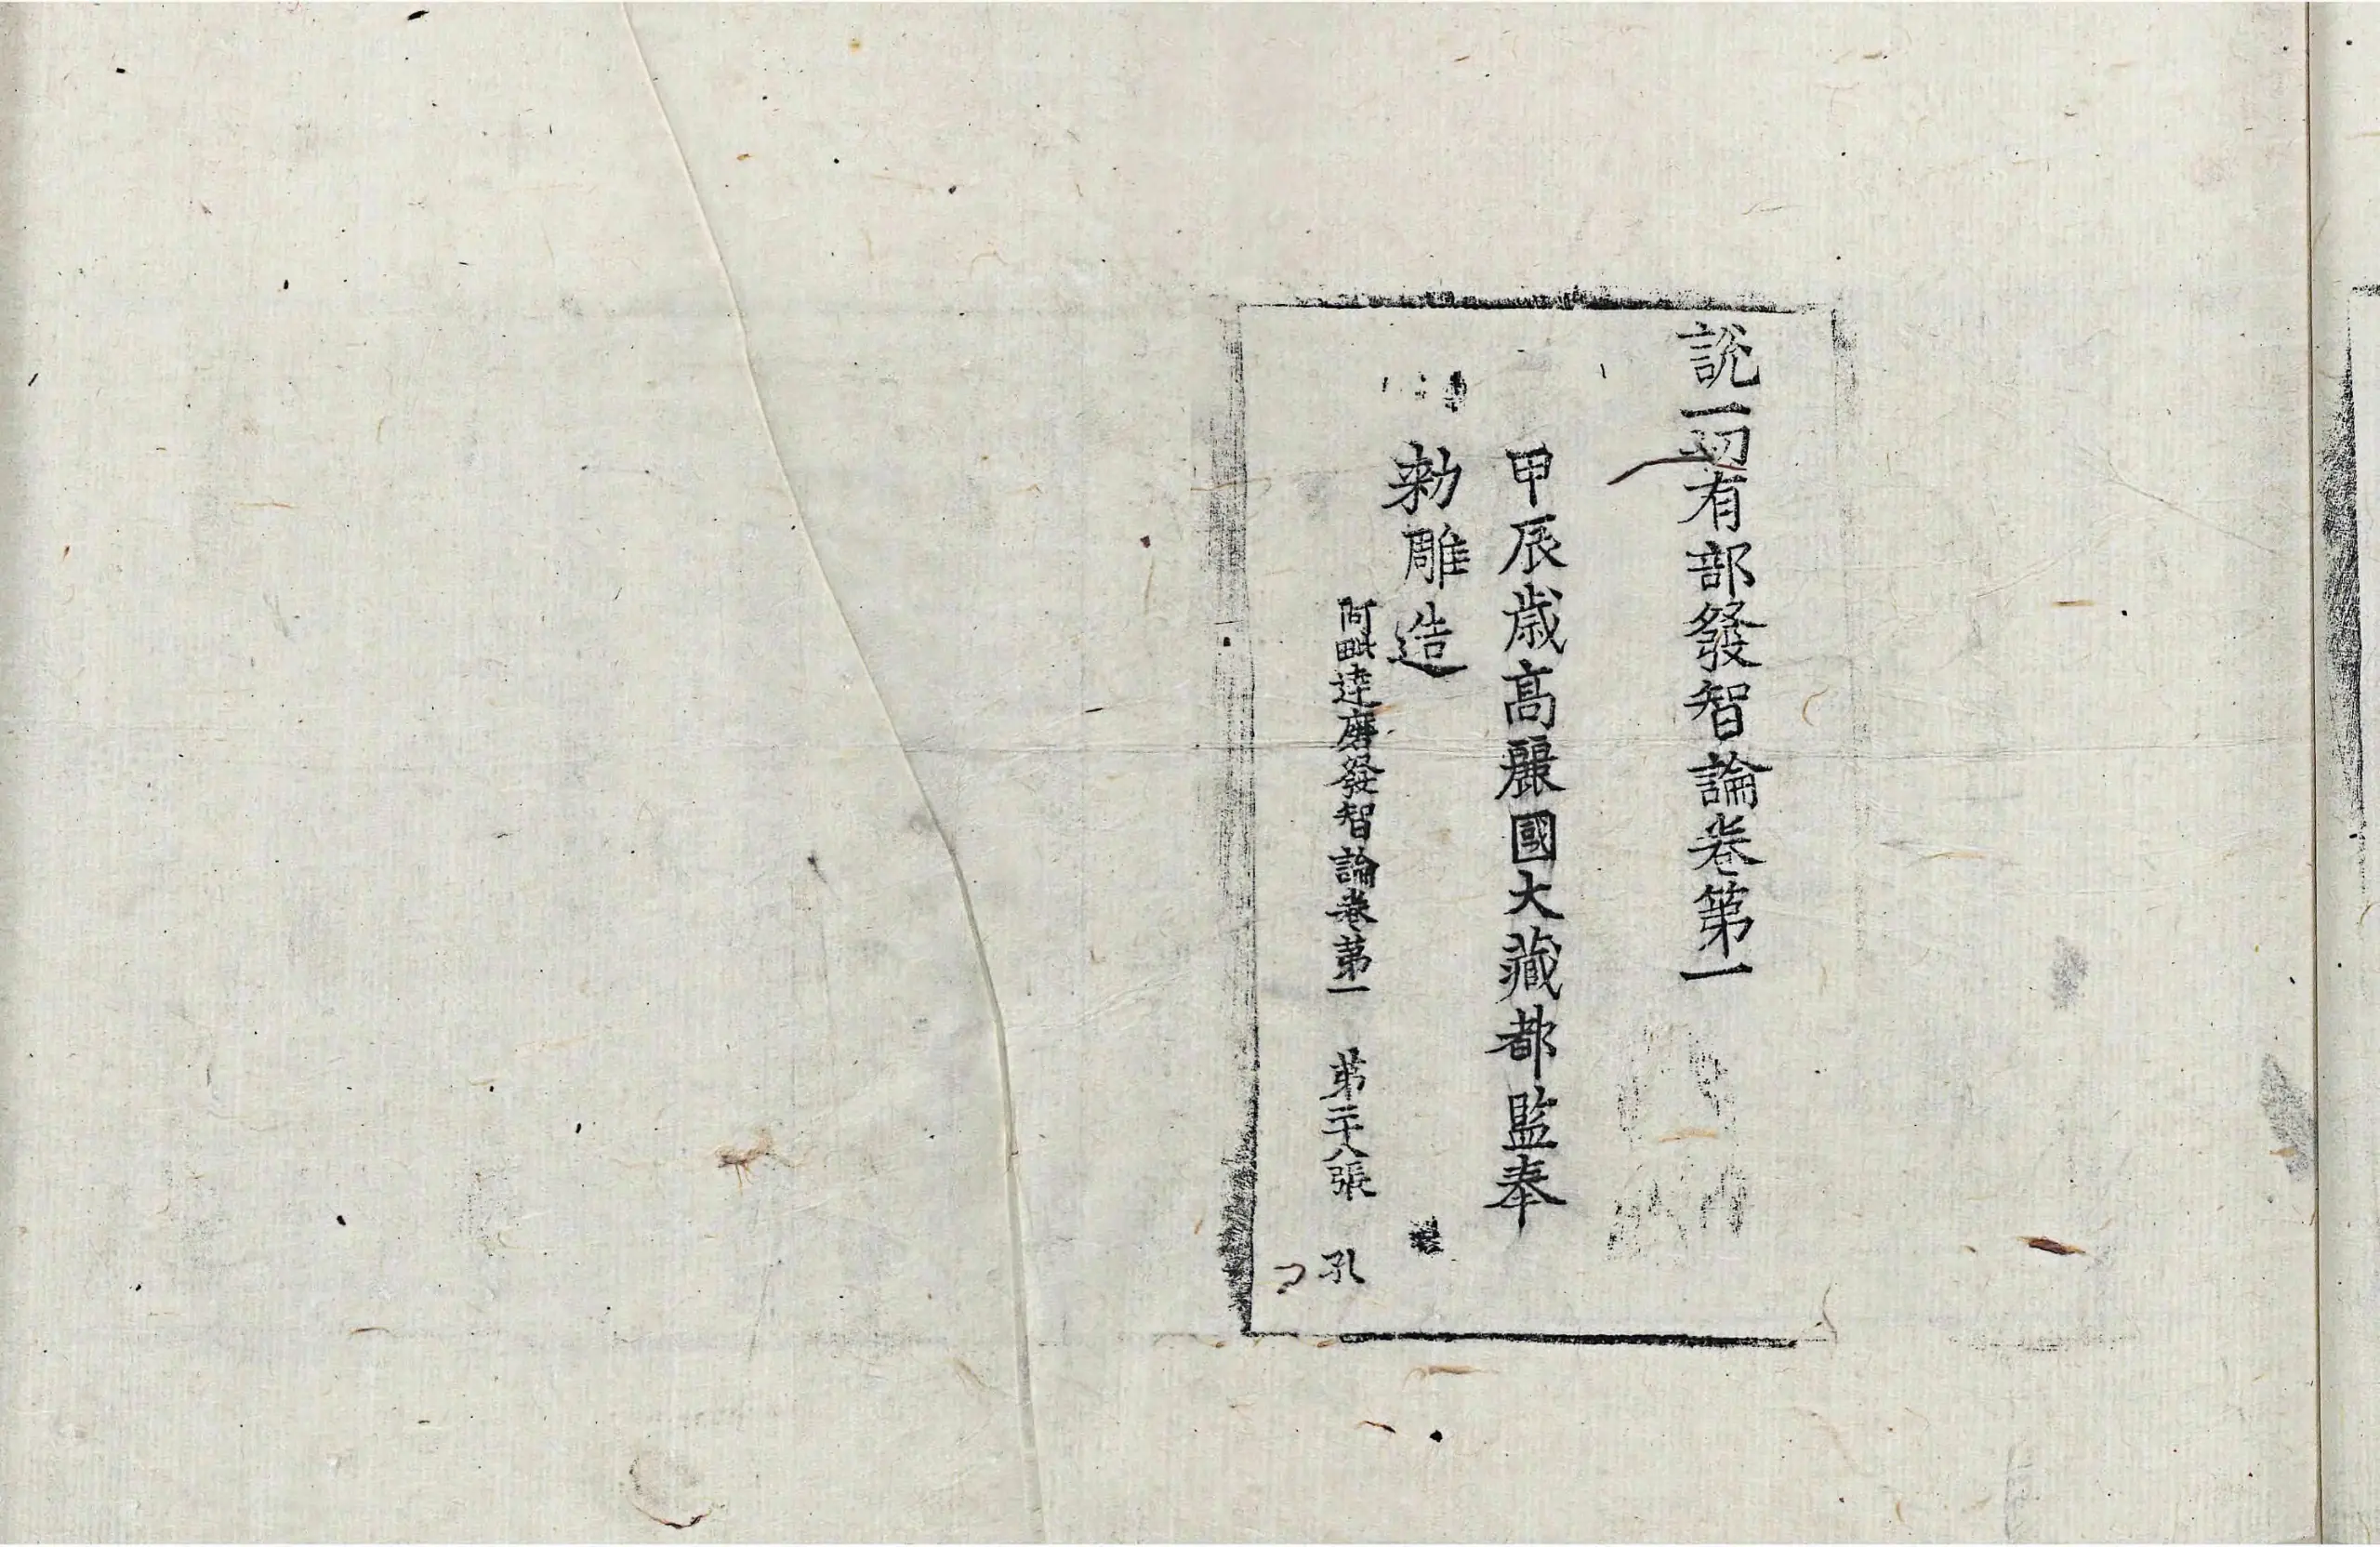 說一切有部發智論卷第一
甲辰歲高麗國大藏都監奉
勑雕造
阿毗達磨發智論卷第一 第二十八張 孔